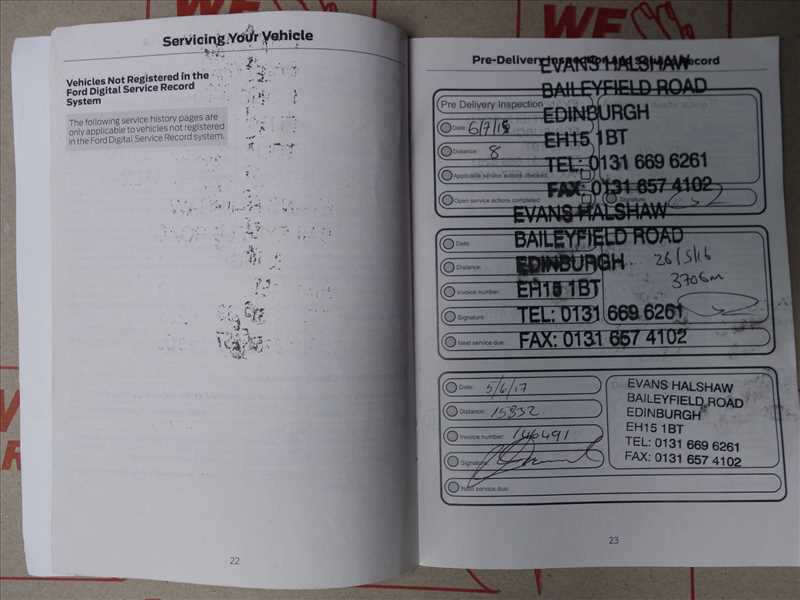 WE
WE
Servicing Your Vehicle
Vehicles Not Registered in the
Ford Digital Service Record
System
The following service history pages are
only applicable to vehicles not registered
in the Ford Digital Service Record system.
22
Pre-Delivery Inspection and Service Record
EVANS HALSHAW
BAILEYFIELD ROAD
EDINBURGH
EH15 1BT
TEL: 0131 669 6261
FAX: 0131 657 4102
Pre Delivery Inspection
Date: 6/7/15
Distance: 8
Applicable service actions checked
Open service actions completed
Signature
EVANS HALSHAW
BAILEYFIELD ROAD
EDINBURGH
EH15 1BT
TEL: 0131 669 6261
FAX: 0131 657 4102
Date:
Distance:
Invoice number:
Signature
Next service due:
26/5/16
3706m
Date: 5/6/17
Distance: 15832
Invoice number: 146491
Signature
Next service due:
EVANS HALSHAW
BAILEYFIELD ROAD
EDINBURGH
EH15 1BT
TEL: 0131 669 6261
FAX: 0131 657 4102
23